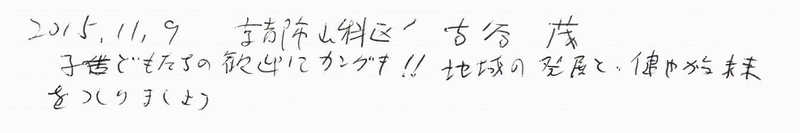 2015.11.9 京都市山科区 古谷 茂
子どもたちの歓迎にカンゲキ!! 地域の発展と、健やかな未来
をつくりましょう